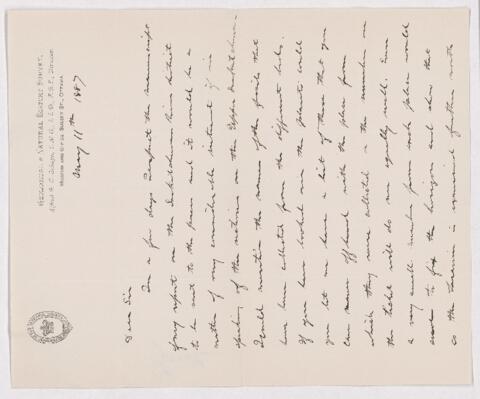 GEOLOGICAL & NATURAL HISTORY SURVEY,
MUSEUM AND OFFICE SUSSEX ST., OTTAWA
May 11th 1887
Dear Sir
In a few days I expect the manuscript
of my report on the Saskatchewan district
to be sent to the press and it would be a
matter of very considerable interest if in
speaking of the sections on the Upper Saskatchewan
I could mention the names of the fossils that
have been collected from the different beds.
If you have looked over the plants could
you let me have a list of those that you
can name off hand with the place from
which they were collected or the number on
the ticket will do me equally well. Even
a very small number from each place would
to fix the horizon and show that
as the Laramie is removed further north